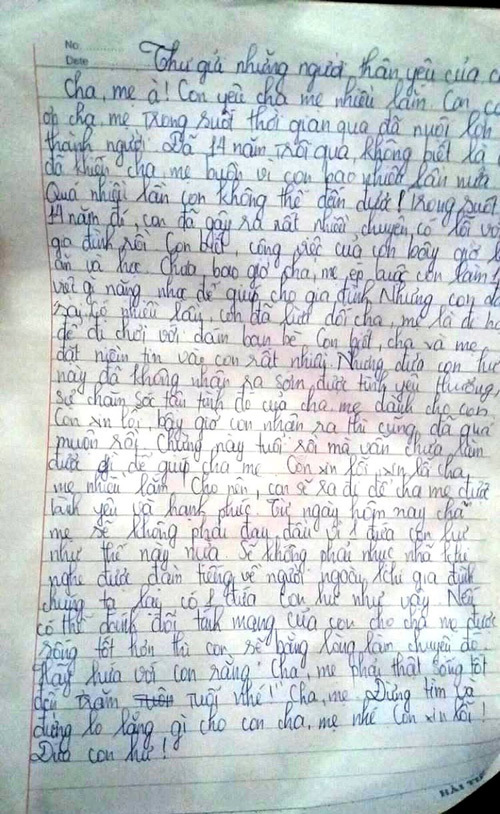 No.
Date
Thư gửi những người thân yêu của c
Cha, mẹ à! Con yêu cha mẹ nhiều lắm. Con c
ơn cha, mẹ trong suốt thời gian qua đã nuôi lớn
thành người. Đã 14 năm trôi qua, không biết là
đã khiến cha, mẹ buồn vì con bao nhiêu lần nữa.
Quá nhiều lần con không thể đếm được! Trong suốt
14 năm đó, con đã gây ra rất nhiều chuyện có lỗi với
gia đình rồi. Con biết, công việc của con bây giờ l
ăn và học. Chưa bao giờ cha, mẹ ép buộc con làm
việc gì nặng nhọc để giúp cho gia đình. Nhưng con
này có nhiều lần, con đã lừa dối cha, mẹ là đi h
để đi chơi với đám bạn bè. Con biết, cha và mẹ
đặt niềm tin vào con rất nhiều. Nhưng đứa con hư
này đã không nhận ra sớm được tình yêu thương,
sự chăm sóc tận tình đó của cha, mẹ dành cho con
Con xin lỗi, bây giờ con nhận ra thì cũng đã quá
muộn rồi. Chừng này tuổi rồi mà vẫn chưa làm
được gì để giúp cha mẹ. Con xin lỗi, xin lỗi cha,
mẹ nhiều lắm! Cho nên, con sẽ ra đi để cha mẹ được
bình yên và hạnh phúc. Từ ngày hôm nay cha
mẹ sẽ không phải đau đầu vì 1 đứa con hư
như thế này nữa. Sẽ không phải nhục nhã khi
nghe được đàm tiếng về người ngoài khi gia đình
chúng ta lại có 1 đứa con hư như vậy. Nếu
có thể đánh đổi tính mạng của con cho cha mẹ được
sống tốt hơn thì con sẽ bằng lòng làm chuyện đó.
Hãy hứa với con rằng "Cha, mẹ phải thật sống tốt
đến trăm tuổi nhé!" Cha, mẹ đừng tìm và
đừng lo lắng gì cho con cha, mẹ nhé. Con xin lỗi!
Đứa con hư!
HẢI TIẾ